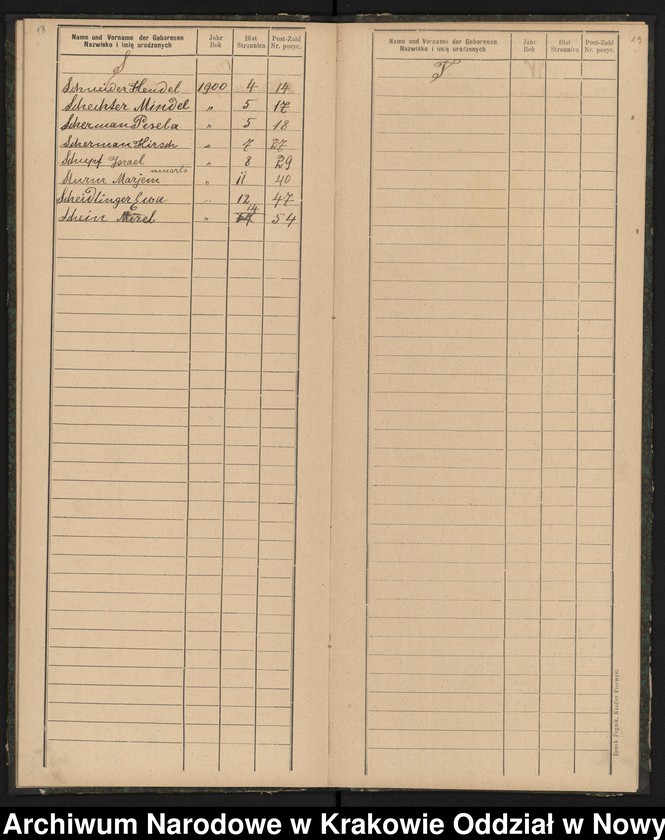 18
Name und Vorname der Geborenen
Nazwisko i imię urodzonych
Jahr
Rok
Blatt
Stronnica
Post-Zahl
Nr. pozyc.
S
Schneider Hendel 1900 4 14
Schechter Mindel " 5 17
Scherman Pesela " 5 18
Scherman Hirsch " 7 27
Schupf Israel " 8 29
umarła
Sturm Marjem " 11 40
Scheidlinger Ewa " 12 47
14
Schein " 54
19
Name und Vorname der Geborenen
Nazwisko i imię urodzonych
Jahr
Rok
Blatt
Stronnica
Post-Zahl
Nr. pozyc.
T
Archiwum Narodowe w Krakowie Oddział w Nowy